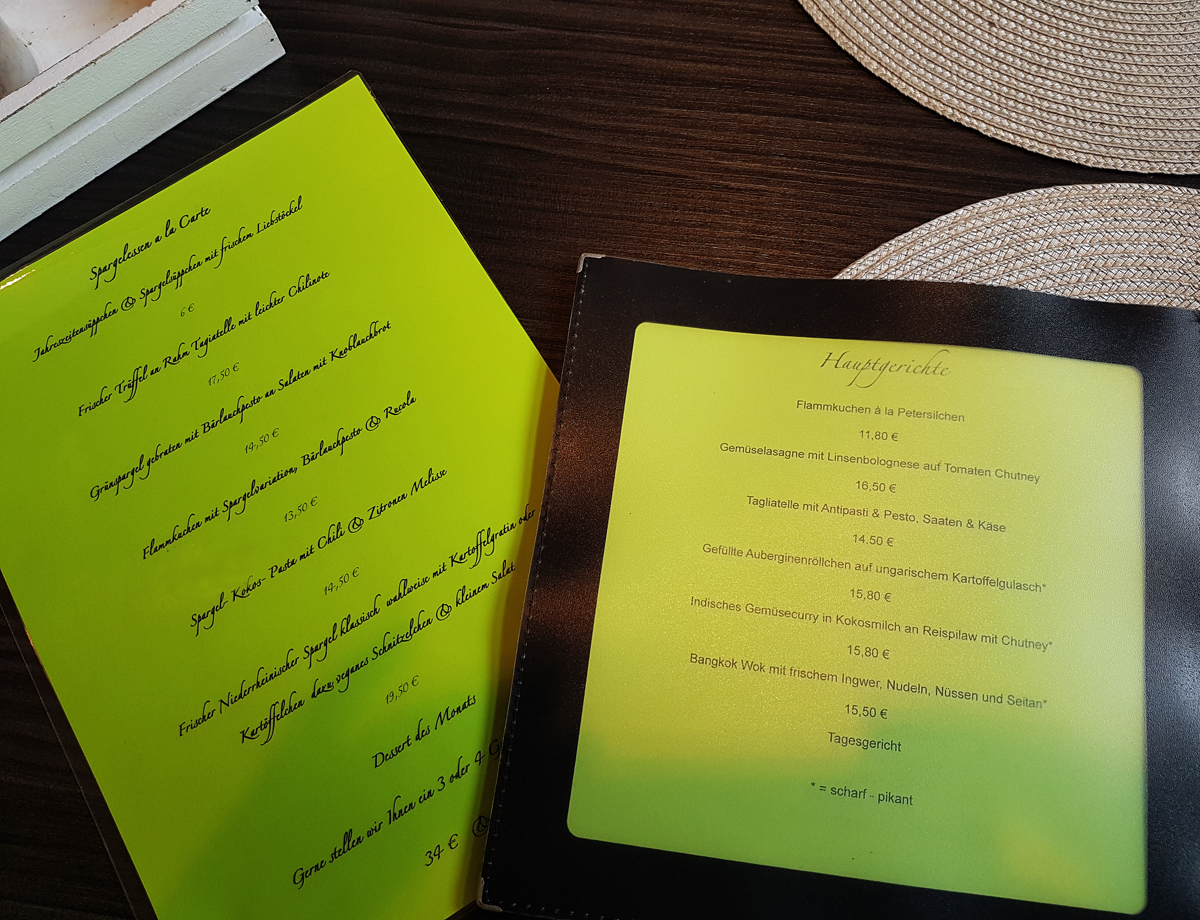 Spargelessen a la Carte
Jahreszeitensüppchen & Spargelsüppchen mit frischem Liebstöckel
6 €
Frischer Trüffel an Rahm Tagiatelle mit leichter Chilinote
17,50 €
Grünspargel gebraten mit Bärlauchpesto an Salaten mit Knoblauchbrot
14,50 €
Flammkuchen mit Spargelvariation, Bärlauchpesto & Rucola
13,50 €
Spargel- Kokos- Pasta mit Chili & Zitronen Melisse
14,50 €
Frischer Niederrheinischer Spargel klassisch wahlweise mit Kartoffelgratin oder
Kartöffelchen dazu veganes Schnitzelchen & kleinem Salat
19,50 €
Dessert des Monats
Gerne stellen wir Ihnen ein 3 oder 4 G
34 € &
Hauptgerichte
Flammkuchen à la Petersilchen
11,80 €
Gemüselasagne mit Linsenbolognese auf Tomaten Chutney
16,50 €
Tagliatelle mit Antipasti & Pesto, Saaten & Käse
14.50 €
Gefüllte Auberginenröllchen auf ungarischem Kartoffelgulasch*
15,80 €
Indisches Gemüsecurry in Kokosmilch an Reispilaw mit Chutney*
15,80 €
Bangkok Wok mit frischem Ingwer, Nudeln, Nüssen und Seitan*
15,50 €
Tagesgericht
* = scharf - pikant